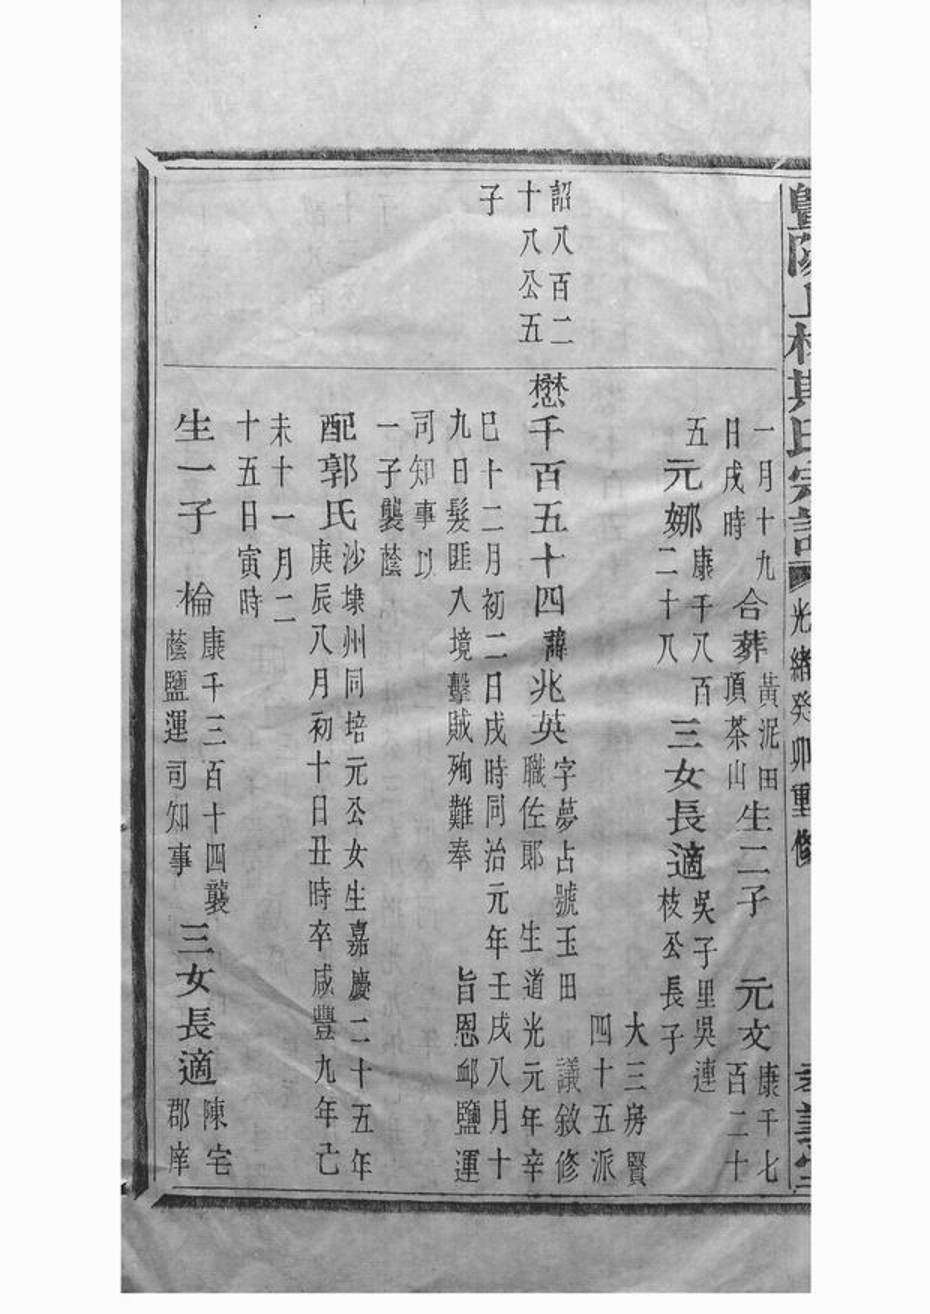 暨陽上林斯氏宗譜 光緒癸卯重修 孝義堂
一月十九
日戌時
合葬
黃泥田
頂茶山
生二子 元文
康千七
百二十
五
元娜
康千八百
二十八
三女長適
吳子里吳連
枝公長子
大三房賢
四十五派
詔八百二
十八公五
子
懋千百五十四諱兆英
字夢占號玉田 議敘修
職佐郎 生道光元年辛
巳十二月初二日戌時同治元年壬戌八月十
九日髮匪入境擊賊殉難奉 旨恩卹鹽運
司知事以
一子襲蔭
配郭氏
沙埭州同培元公女生嘉慶二十五年
庚辰八月初十日丑時卒咸豐九年己
未十一月二
十五日寅時
生一子 棆
康千三百十四襲
蔭鹽運司知事
三女長適
陳宅
郡庠